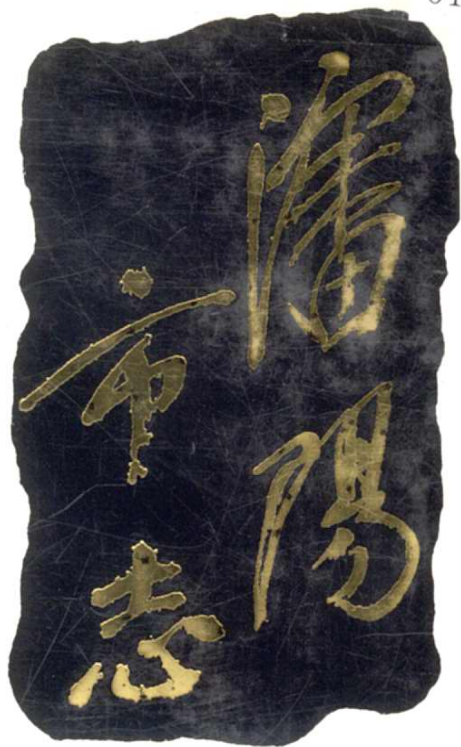 瀋陽
市志